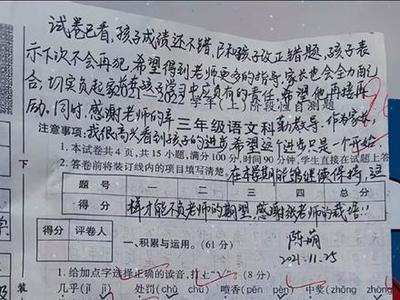 试卷已看,孩子成绩还不错,已和孩子改正错题,孩子表
示下次不会再犯,希望得到老师更多的指导,家长也会全力配
合,切实负起家长在孩子学习中应负有的责任,希望他再接再
2022学年(上)阶段性自测题
励。同时,感谢老师的辛
三年级语文科
勤教导。作为家长,
注意事项:
我很高兴看到孩子的进步,希望这个进步只是一个开始,
1.本试卷共4页,共15小题,满分100分,时间90分钟,学生直接在试题上答
2.答卷前将装订线内的项目填写清楚
在本学期能够继续保持,这
题号 一 二 三 四 总分
得分
样才能不负老师的期望,感谢张老师的栽培!!
得分 评卷人
陈萌
2021.11.25
一、积累与运用。(61分)
1.给加点字选择正确的读音,打“√”。(8分)
几乎(jī jǐ) 处罚(chǔ chù) 喷香(pēn pèn) 中
下
装